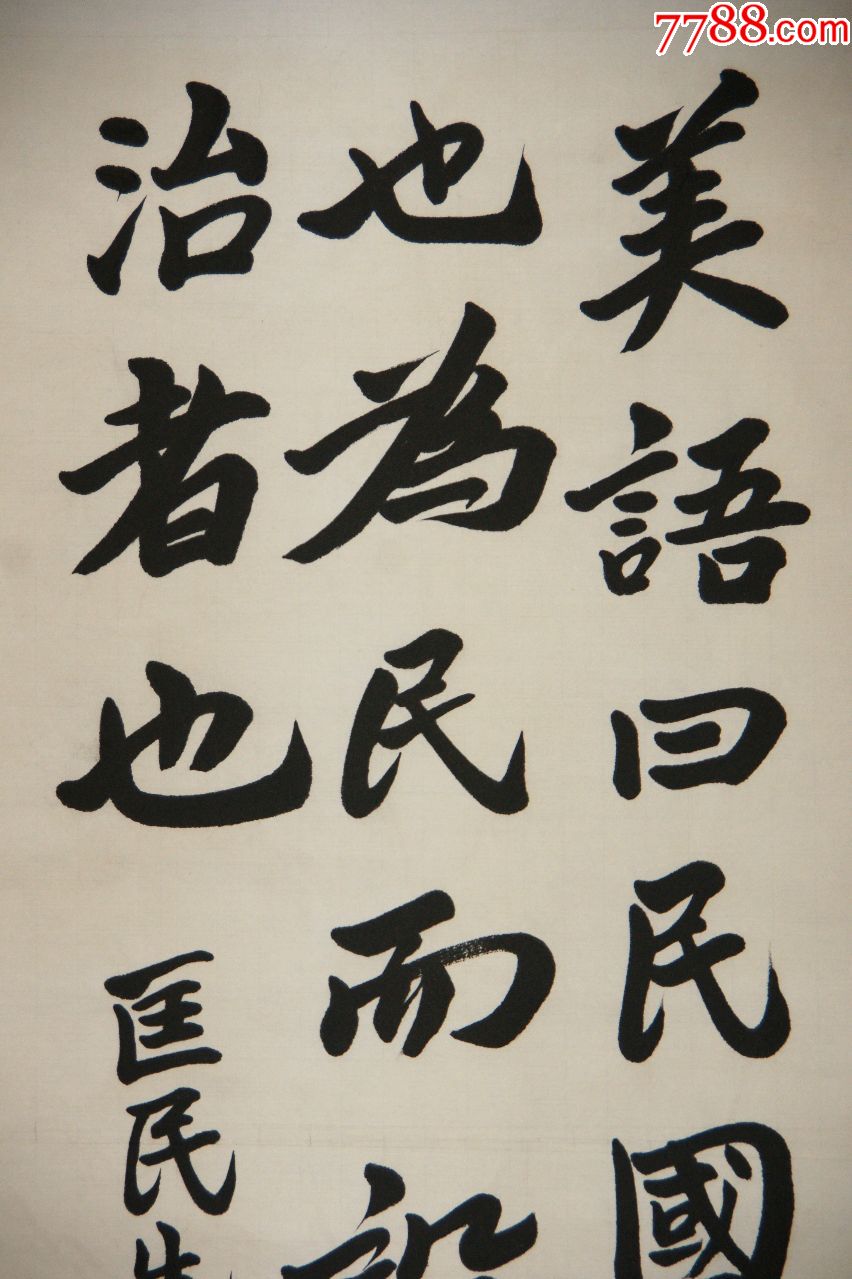 7788.com
美語曰民國
也為民而設
治者也
匡民先